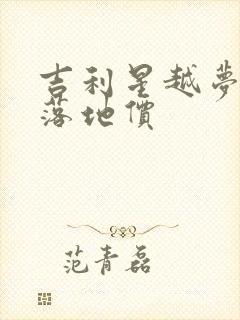 吉利星越夢
落地價
范青磊